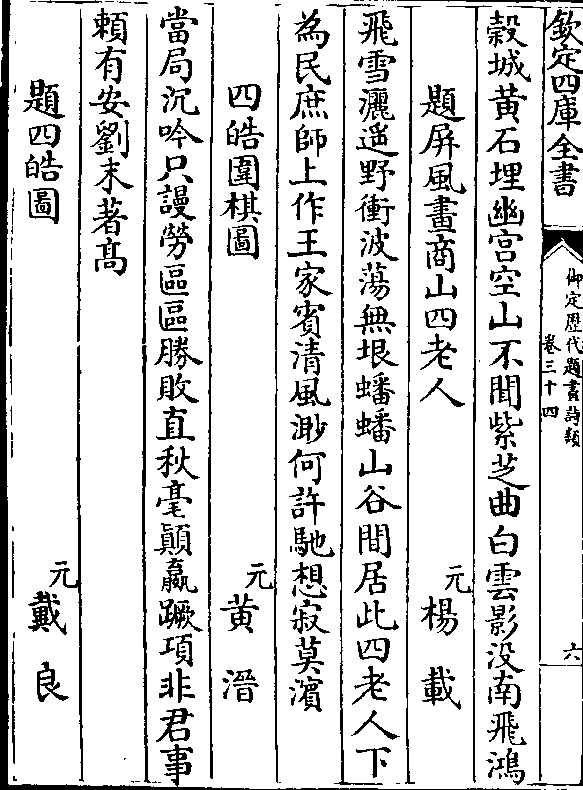 欽定四庫全書
御定歷代題畫詩類
卷三十四
六
穀城黄石埋幽宫空山不聞紫芝曲白雲影没南飛鴻
題屏風畫商山四老人
元
楊載
飛雪灑遥野衝波蕩無垠蟠蟠山谷間居此四老人下
為民庶師上作王家賓清風渺何許馳想寂莫濵
四皓圍棋圖
元
黄溍
當局沉吟只謾勞區區勝敗直秋毫顛嬴蹶項非君事
頼有安劉末著髙
題四皓圖
元
戴良